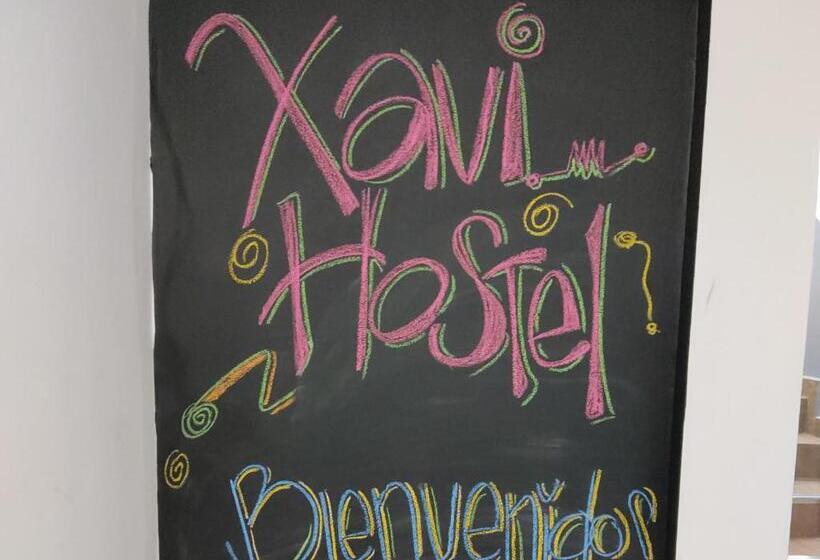 Xavi
Hostel
Bienvenidos